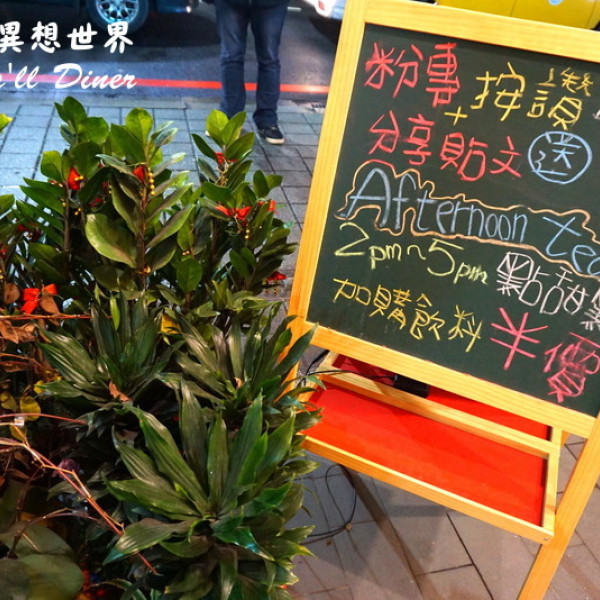 異想世界
'll Diner
粉專按讚
+
分享貼文 送
Afternoon tea
2pm~5pm 點甜點
加購飲料半價